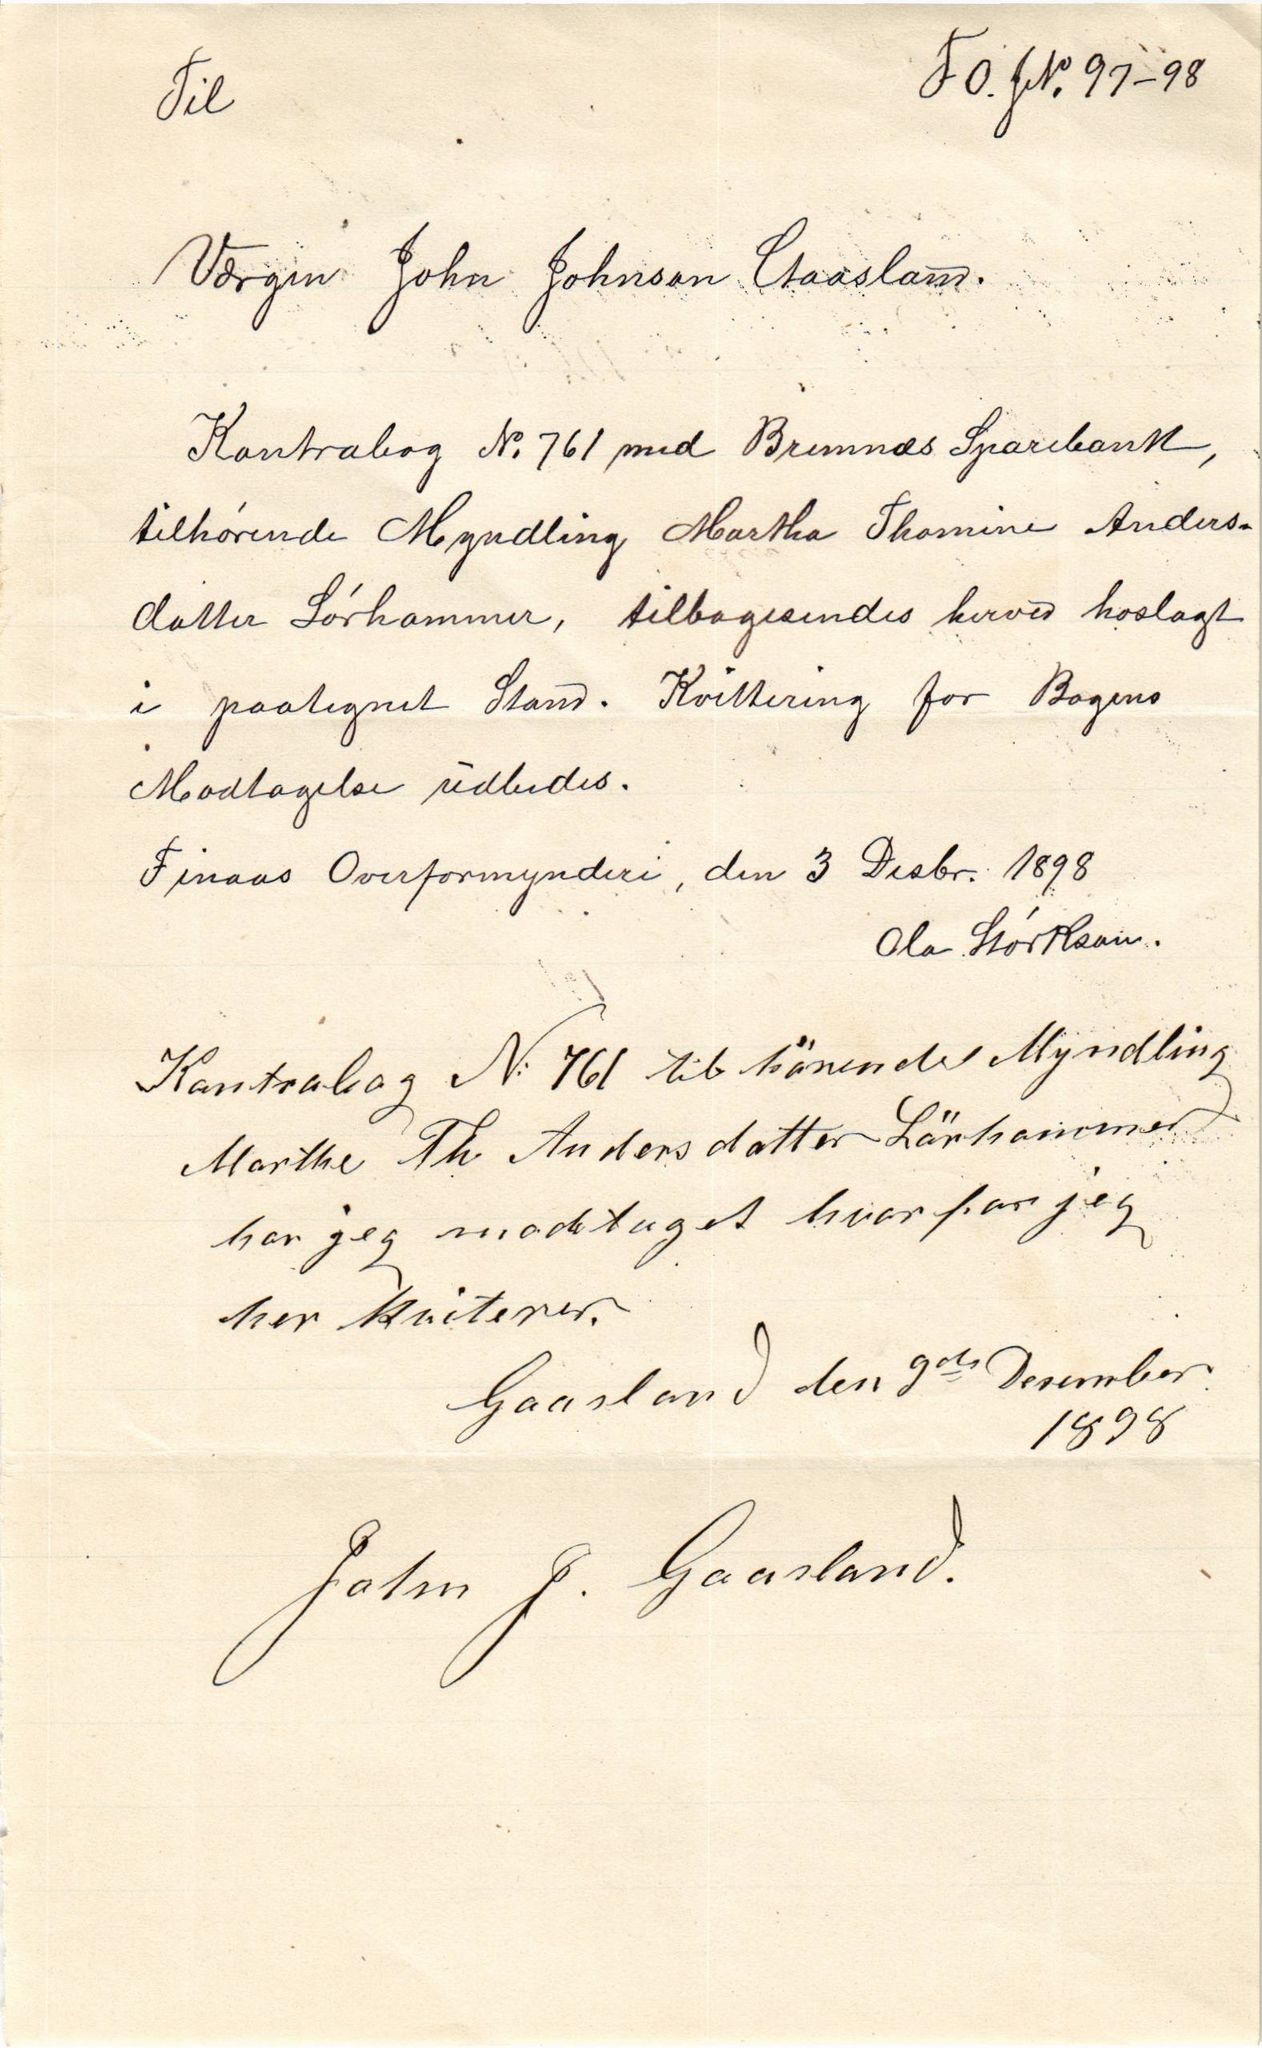 F O. J№. 97-98
Til
Værgen John Johnson Gaasland.
Kontrabog №. 761 med Bremnæs Sparebank,
tilhørende Myndling Martha Thomine Anders-
datter Lørhammer, tilbagesendes herved hoslagt
i paategnet Stand. Kvittering for Bogens
Modtagelse udbedes.
Finaas Overformynderi, den 3 Desbr. 1898
Ola Størkson.
Kontrabog N: 761 til hörende Myndling
Marthe Th Andersdatter Lörhammer
har jeg modtaget hvorfor jeg
her kviterer.
Gaasland den 9de Desember
1898
John J. Gaasland.